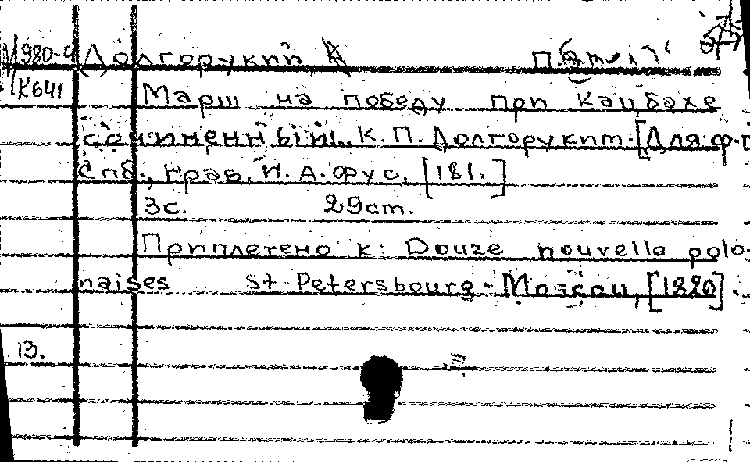 М980-4 Долгорукий,
К641
Марш на победу при Кацбахе
сочиненный.. К. П. Долгоруким. [Для ф.п
Спб., грав. И. А. Фус, [181.]
3с. 29ст.
Приплетено к: Douze nouvella polo-
naises St-Petersbourg-Moscou, [1820].
13.